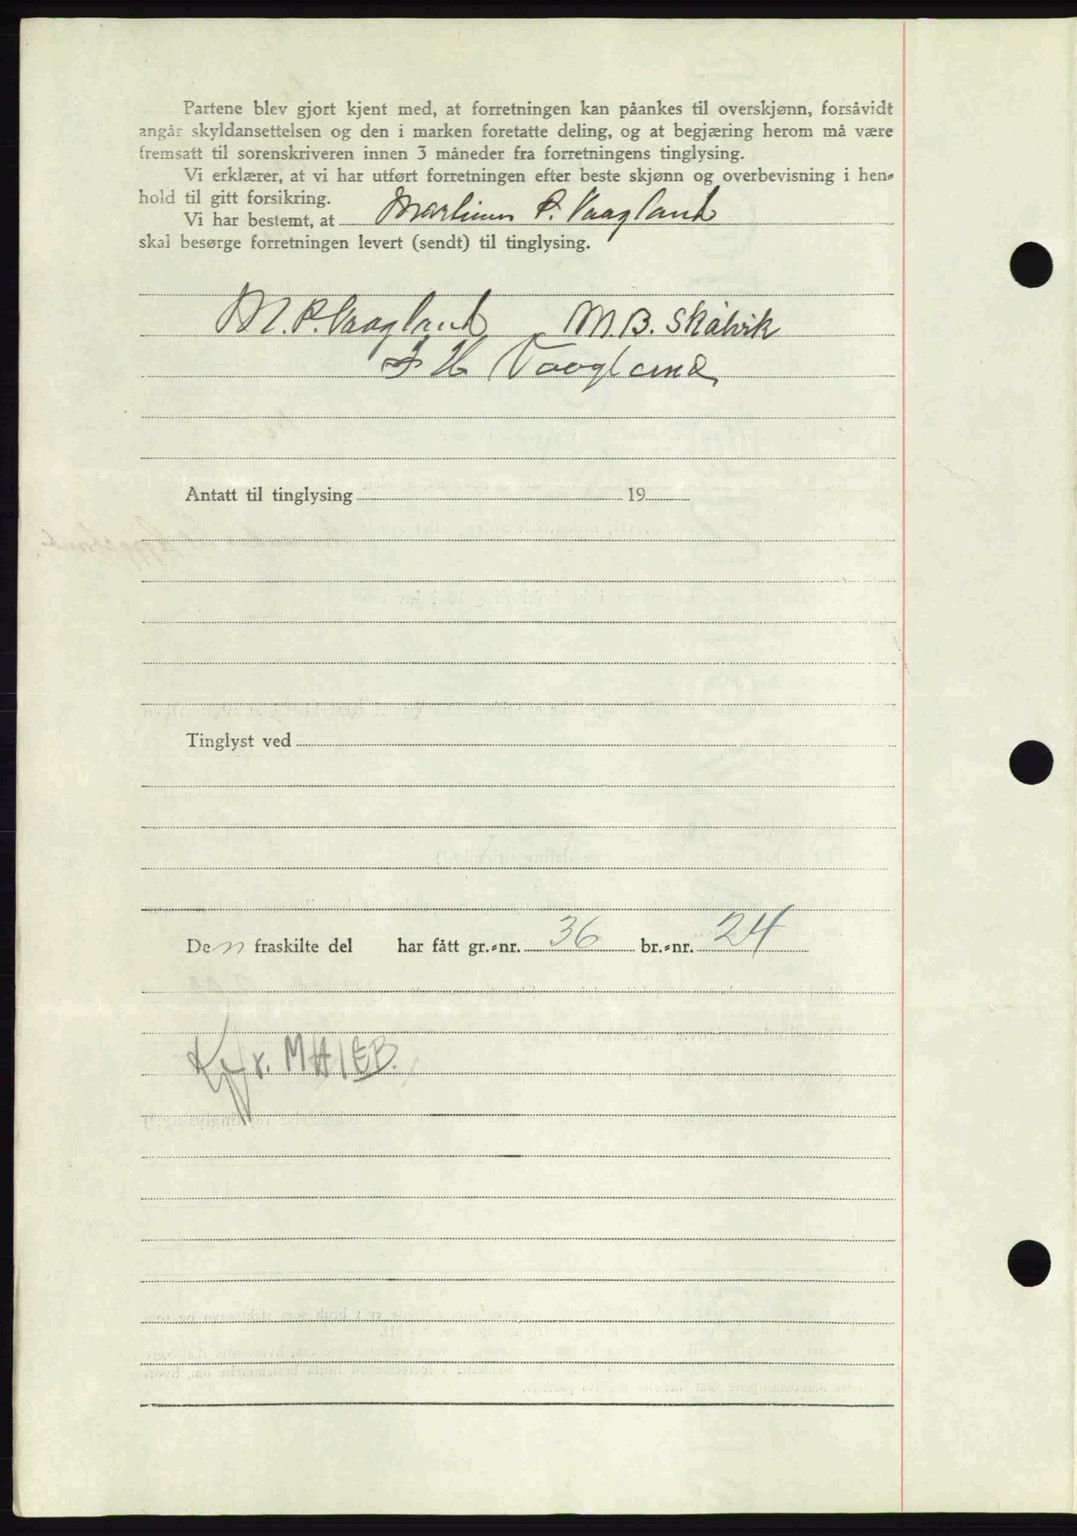 Partene blev gjort kjent med, at forretningen kan påankes til overskjønn, forsåvidt
angår skyldansettelsen og den i marken foretatte deling, og at begjæring herom må være
fremsatt til sorenskriveren innen 3 måneder fra forretningens tinglysing.
Vi erklærer, at vi har utført forretningen efter beste skjønn og overbevisning i hen-
hold til gitt forsikring.
Vi har bestemt, at Martinus P. Vaagland
skal besørge forretningen levert (sendt) til tinglysing.
M. P. Vaagland M.B. Skålvik
I H Vaagland
Antatt til tinglysing 19
Tinglyst ved
Den fraskilte del har fått gr.-nr. 36 br.-nr. 24